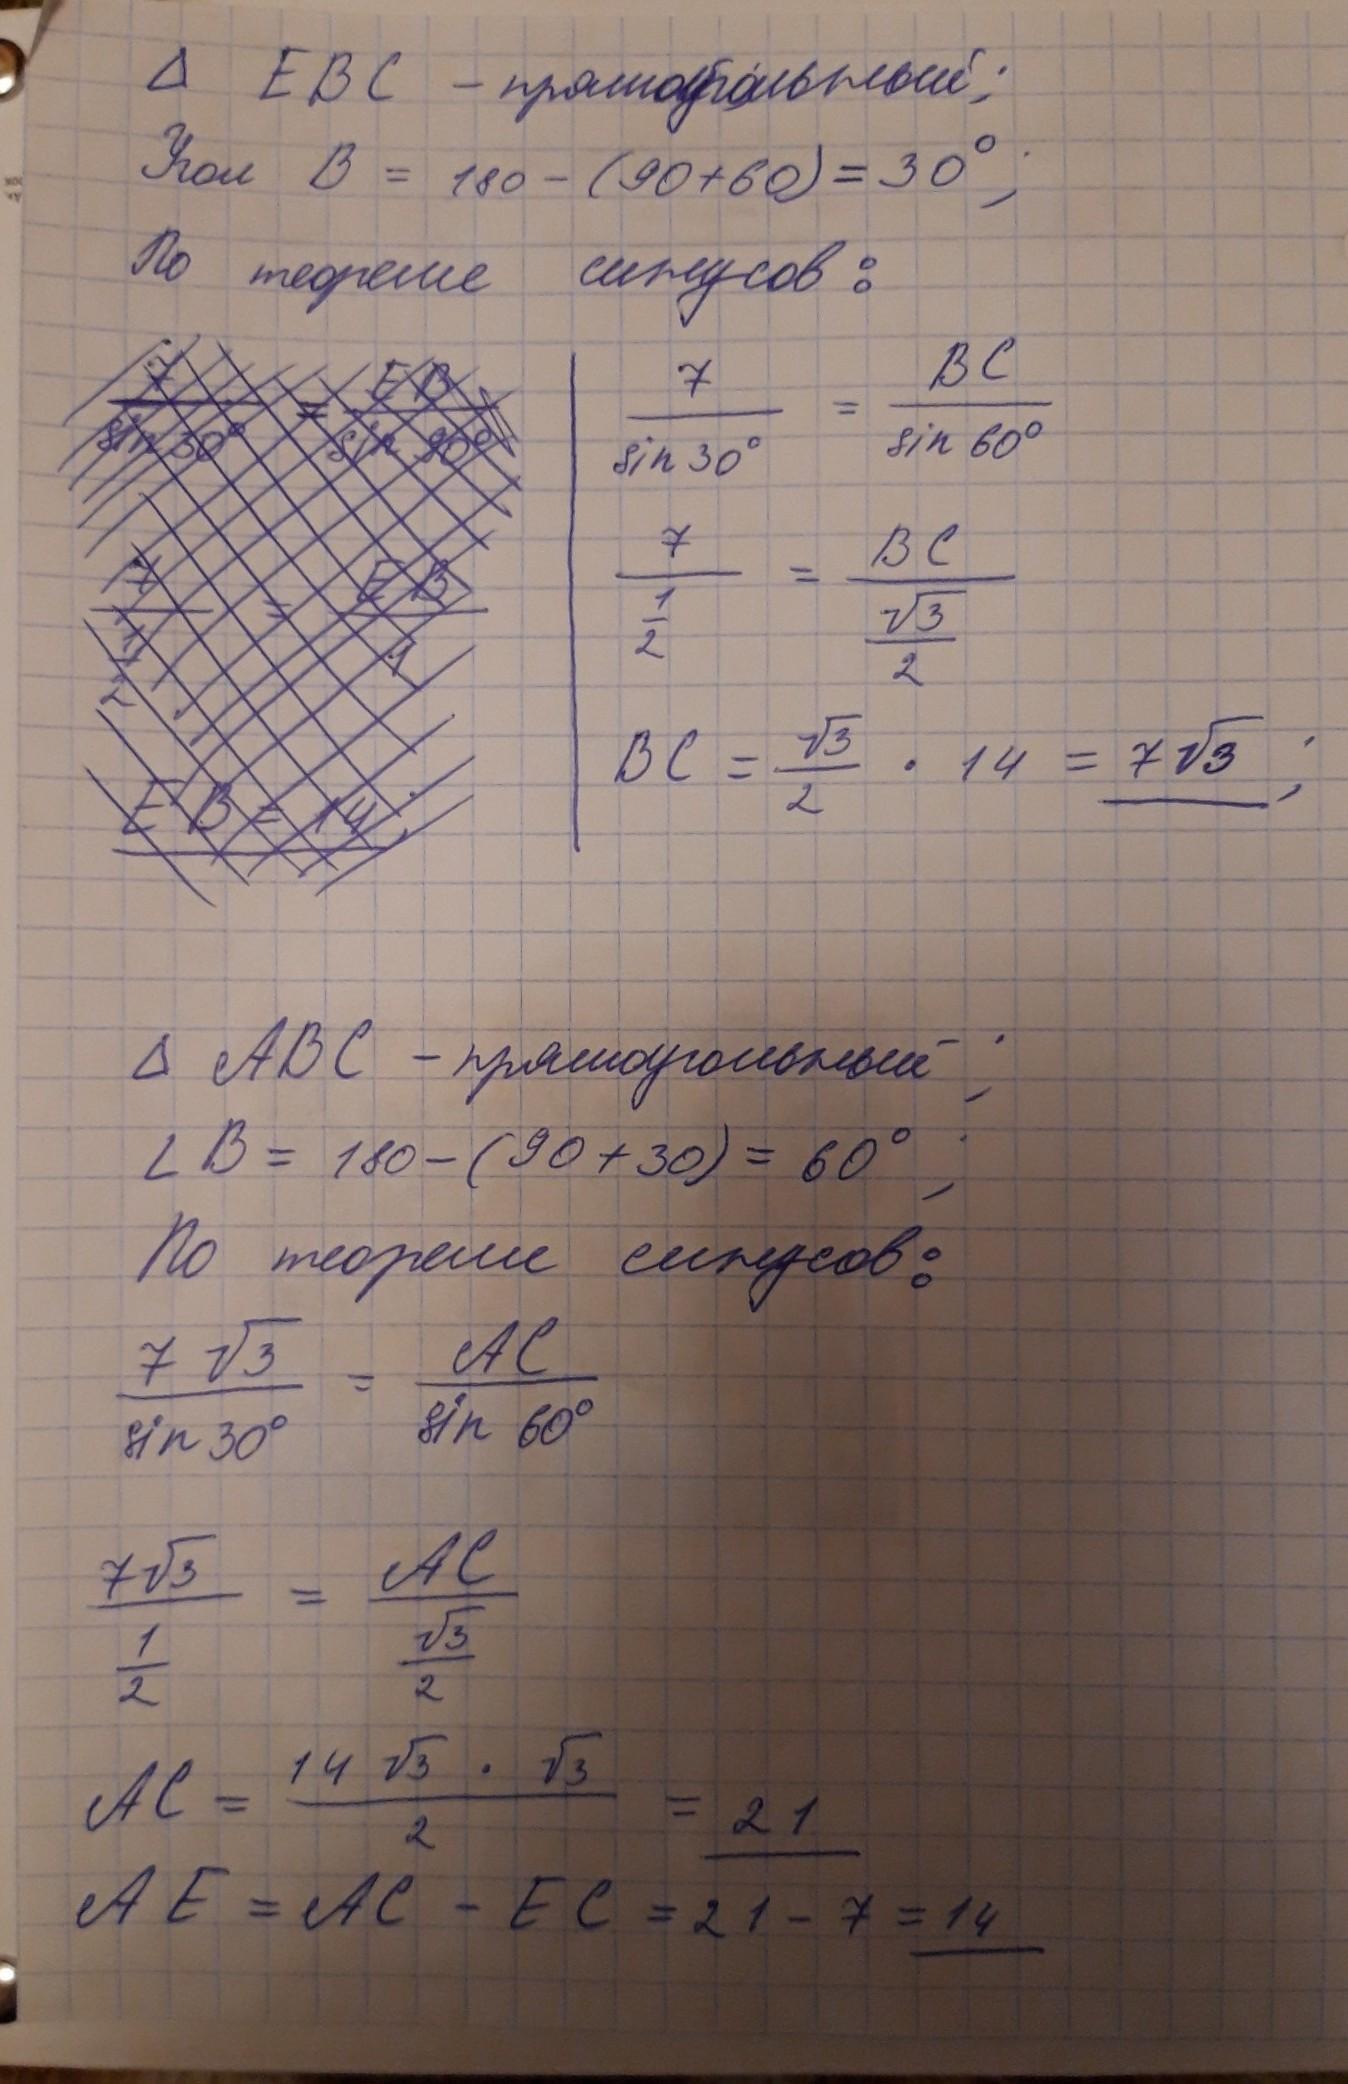 Δ EBC - прямоугольный;
Угол B = 180 - (90+60) = 30°;
По теореме синусов:
7/sin 30° = EB/sin 90°
7/(1/2) = EB/1
EB = 14;
7/sin 30° = BC/sin 60°
7/(1/2) = BC/(√3/2)
BC = √3/2 · 14 = 7√3;
Δ ABC - прямоугольный;
∠B = 180 - (90+30) = 60°;
По теореме синусов:
7√3/sin 30° = AC/sin 60°
7√3/(1/2) = AC/(√3/2)
AC = (14√3 · √3)/2 = 21
AE = AC - EC = 21 - 7 = 14